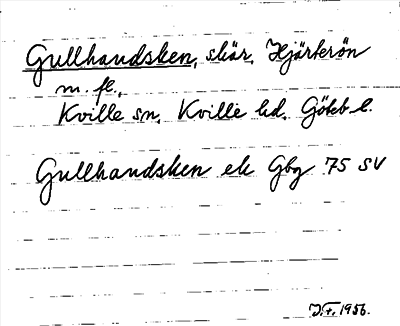 Gullhandsken, skär, Hjärterön
m. fl.,
Kville sn, Kville hd. Göteb l.
Gullhandsken ek Gbg 75 SV
1956.